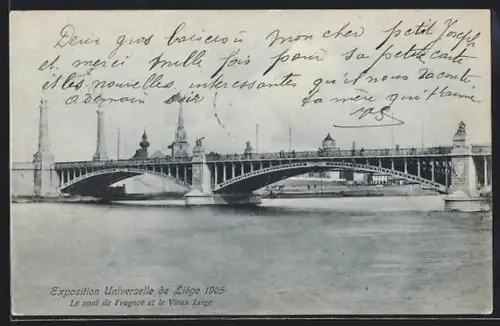 Deux gros baisers à mon cher petit Joseph
et merci mille fois pour sa petite carte
et les nouvelles intéressantes qu'il nous raconte
à demain soir sa mère qui t'aime
Exposition Universelle de Liége 1905
Le pont de Fragnée et le Vieux Liége